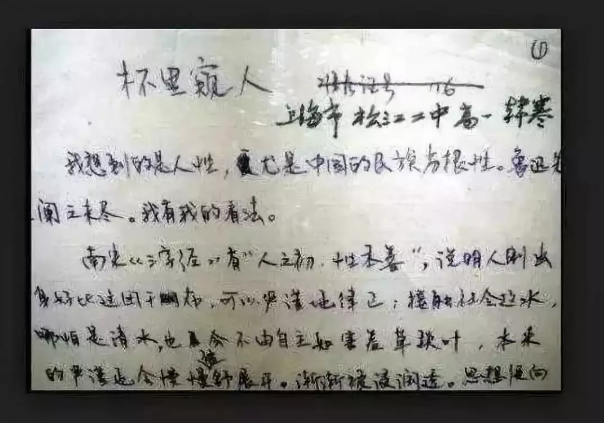 ①
杯里窥人
上海市松江二中高一 韩寒
我想到的是人性,尤是中国的民族劣根性。鲁迅先
阐之未尽。我有我的看法。
南宋《三字经》有"人之初,性本善",说明人刚出
身好比这团干布,可以严谨地律己;接触社会这水,
哪怕是清水,也会不由自主如害羞草叶,本来
的严谨也会慢慢舒展开,渐渐被浸润透。思想便向